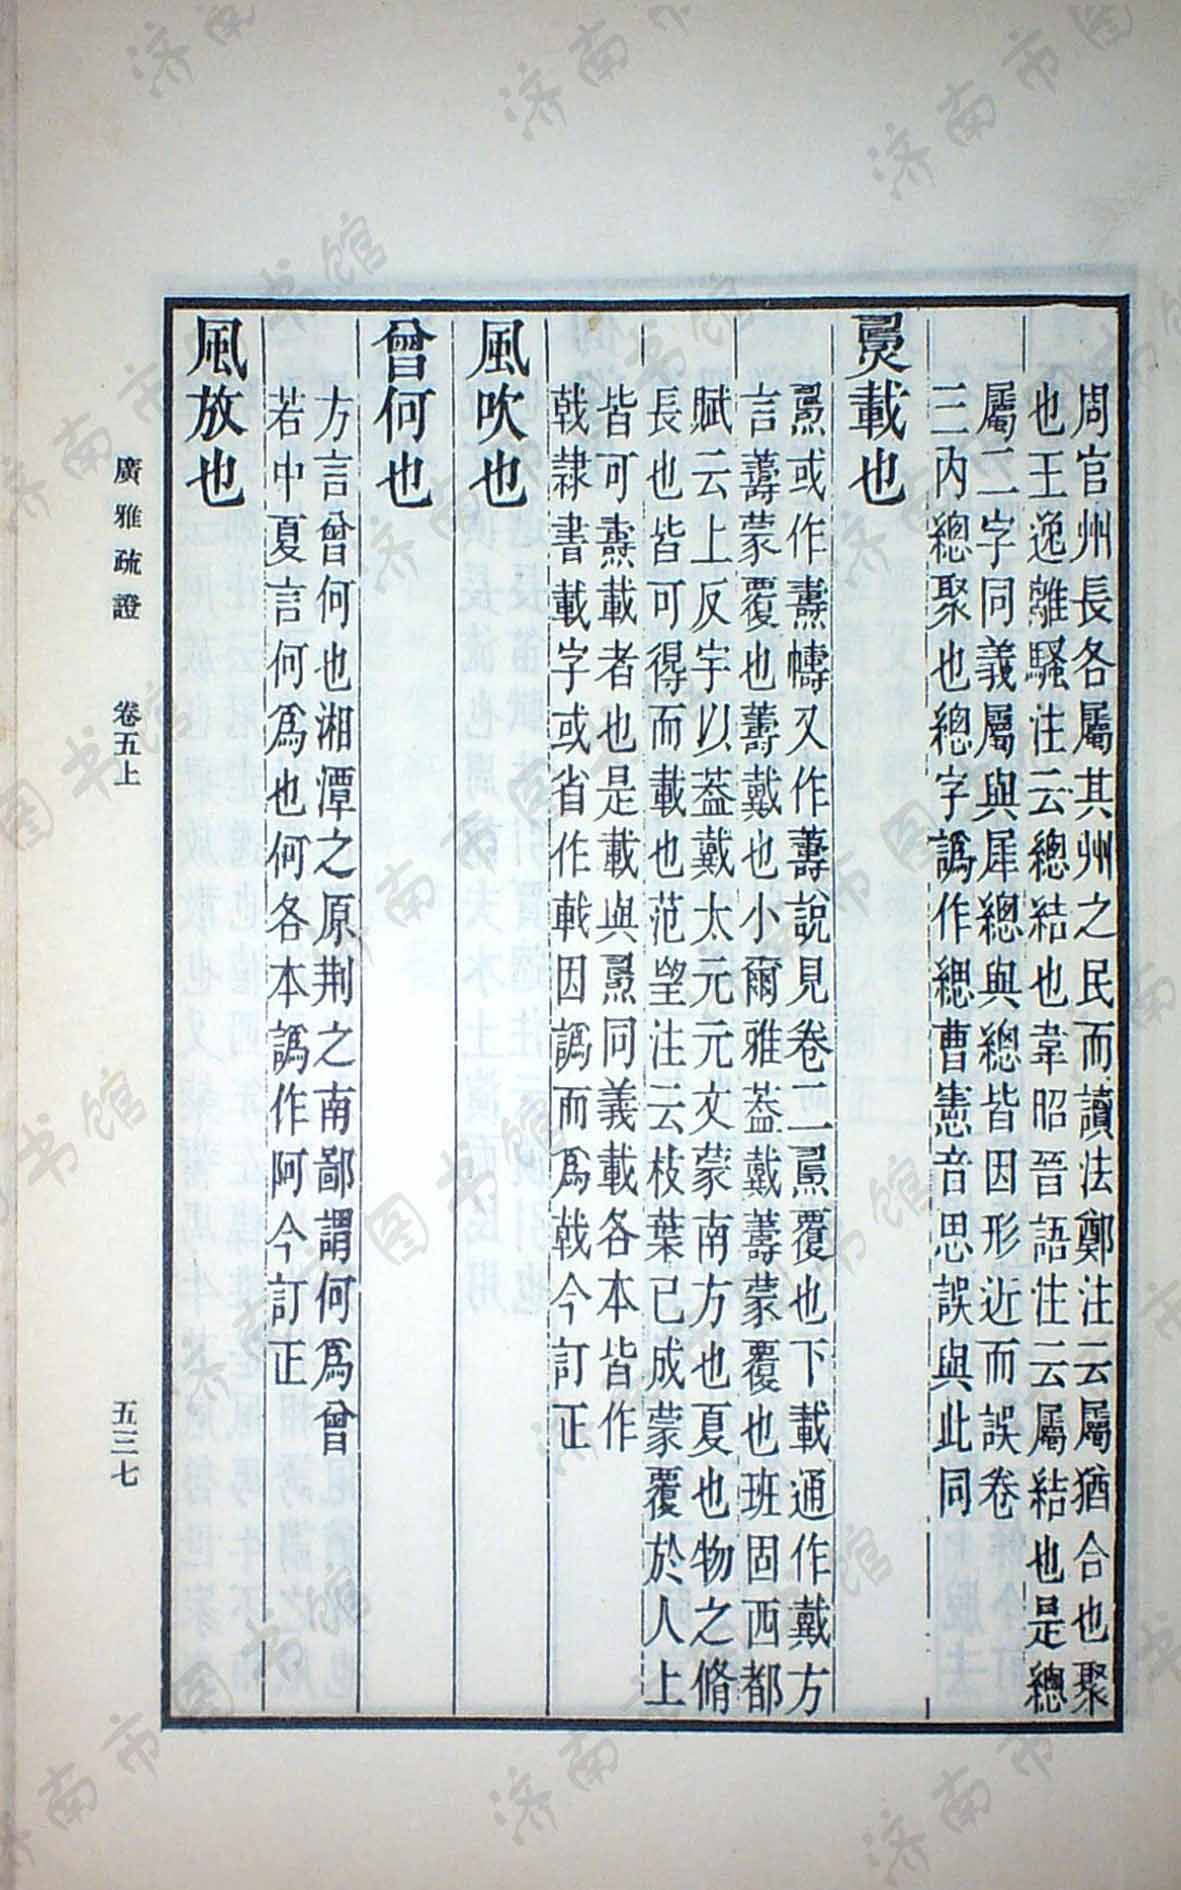 周官州長各屬其州之民而讀法鄭注云屬猶合也聚
也王逸離騷注云總結也韋昭晉語注云屬結也是總
屬二字同義屬與犀總與緫皆因形近而誤卷
三內總聚也總字譌作緦曹憲音思誤與此同
載也
或作燾幬又作薵說見卷二覆也下載通作戴方
言薵蒙覆也薵戴也小爾雅葢戴薵蒙覆也班固西都
賦云上反宇以葢戴太元元文蒙南方也夏也物之脩
長也皆可得而載也范望注云枝葉已成蒙覆於人上
皆可燾載者也是載與同義載各本皆作
戟隷書載字或省作因譌而爲戟今訂正
風吹也
曾何也
方言曾何也湘潭之原荆之南鄙謂何爲曾
若中夏言何爲也何各本譌作阿今訂正
風放也
廣雅疏證 卷五上 五三七
济南市图书馆